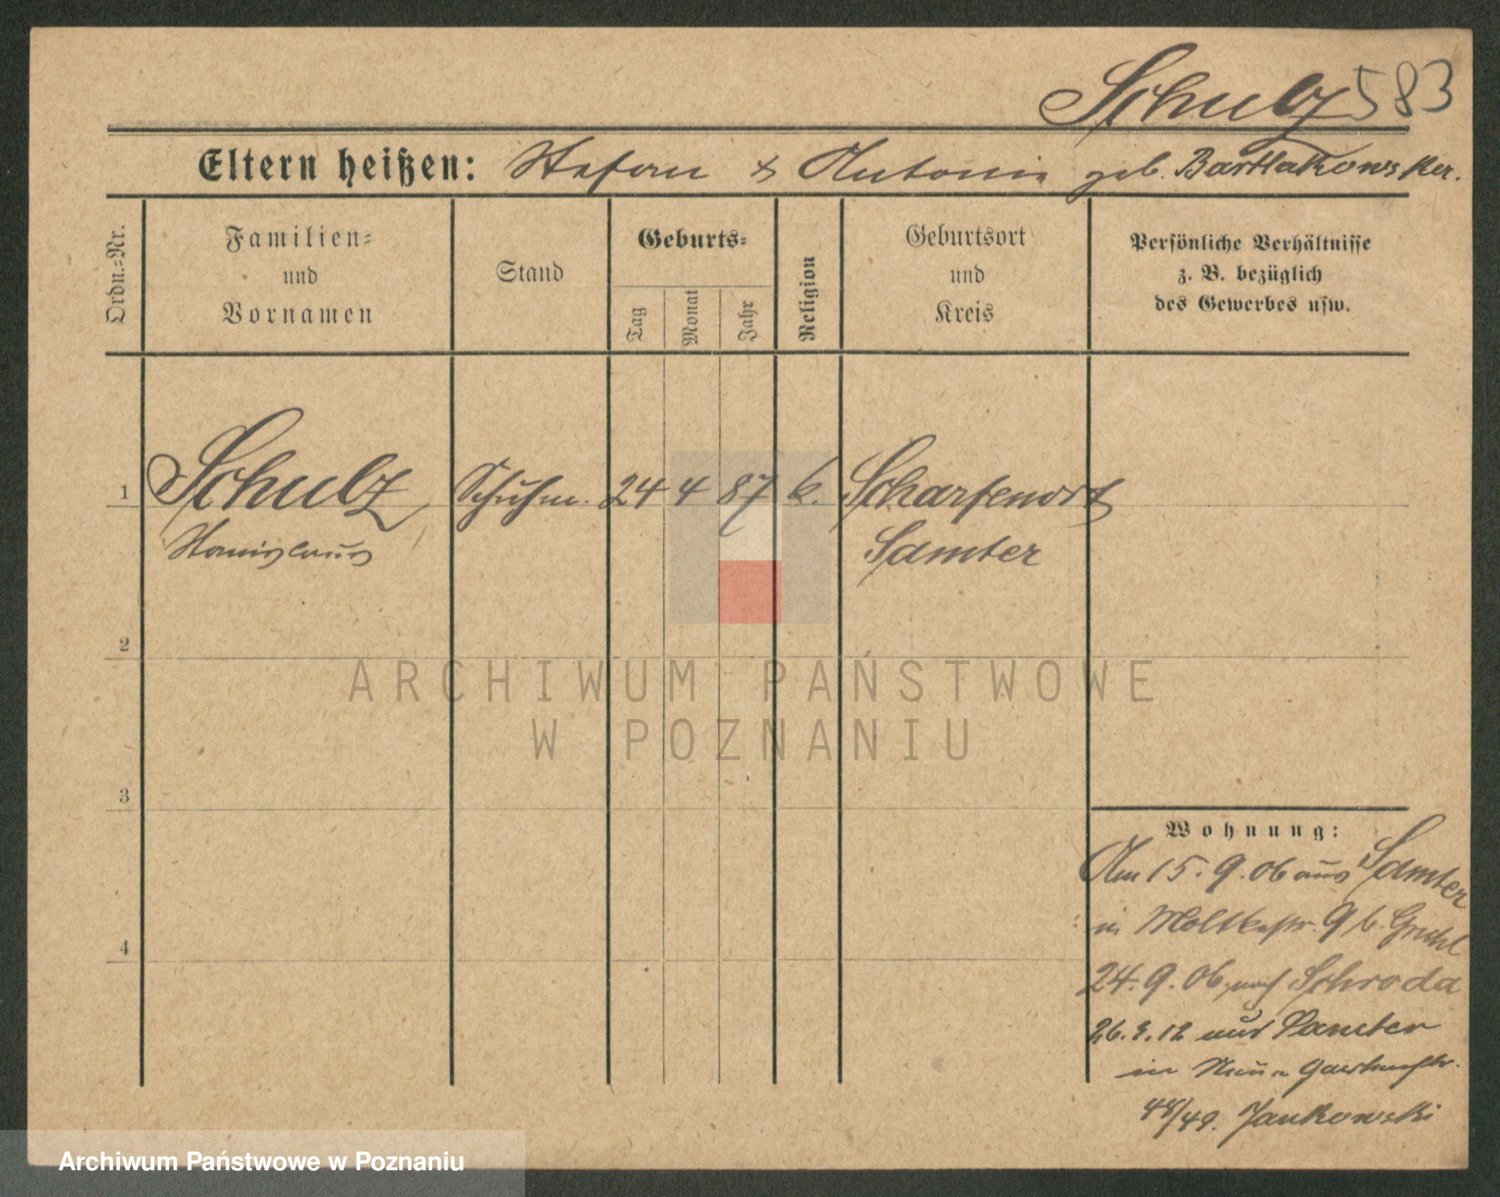 Schulz 583
Eltern heißen: Stefan & Antonie geb. Bartlakowsker.
Ordn.-Nr.
Familien-
und
Vornamen
Stand
Geburts-
Tag
Monat
Jahr
Religion
Geburtsort
und
Kreis
Persönliche Verhältnisse
z. B. bezüglich
des Gewerbes usw.
1 Schulz Schuhm. 24 4 87 k. Scharfenort
Stanislaus Samter
2
3
4
Wohnung:
Am 15.9.06 aus Samter
in Moltkestr. 9 b.
24.9.06 nach Schroda
26.3.12 aus Samter
in Neue Gartenstr.
48/49. Jankowski
ARCHIWUM PAŃSTWOWE
W POZNANIU
Archiwum Państwowe w Poznaniu